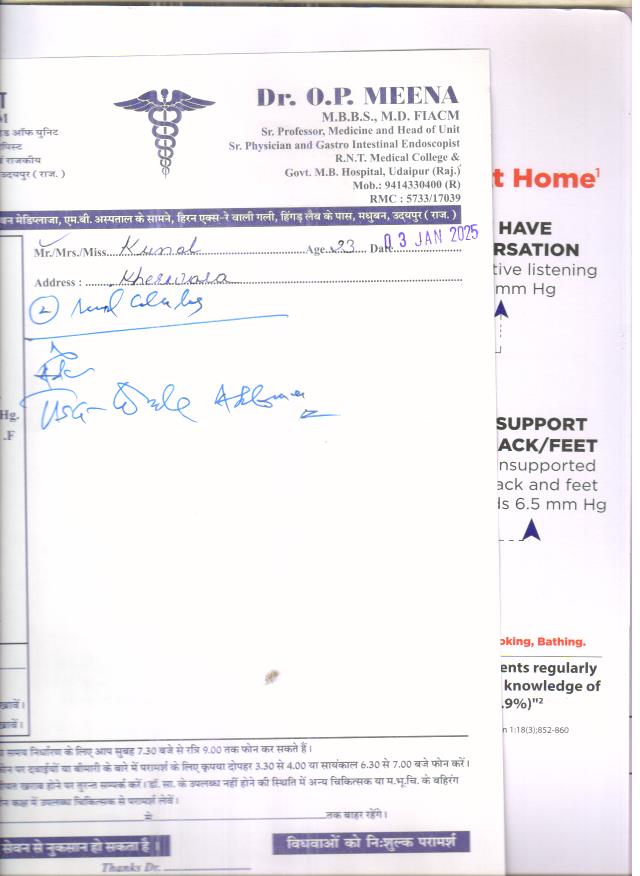 Dr. O.P. MEENA
M.B.B.S., M.D. FIACM
Sr. Professor, Medicine and Head of Unit
Sr. Physician and Gastro Intestinal Endoscopist
R.N.T. Medical College &
Govt. M.B. Hospital, Udaipur (Raj.)
Mob.: 9414330400 (R)
RMC : 5733/17039
M
ड ऑफ यूनिट
पिस्ट
राजकीय
उदयपुर ( राज. )
मेडिप्लाजा, एम.बी. अस्पताल के सामने, हिरन एक्स-रे वाली गली, हिंगड़ लैब के पास, मधुबन, उदयपुर ( राज. )
Mr./Mrs./Miss Kunal Age 23 Date 03 JAN 2025
Address : Kherwara
2 renal
Adv
USG - Whole Abdomen
Hg.
.F
खावें।
खावें।
समय निर्धारण के लिए आप सुबह 7.30 बजे से रात्रि 9.00 तक फोन कर सकते हैं।
पर दवाईयों या बीमारी के बारे में परामर्श के लिए कृपया दोपहर 3.30 से 4.00 या सायंकाल 6.30 से 7.00 बजे फोन करें।
खराब होने पर तुरन्त सम्पर्क करें। डॉ. सा. के उपलब्ध नहीं होने की स्थिति में अन्य चिकित्सक या म.भू.चि. के बहिरंग
कक्ष में उपलब्ध चिकित्सक से परामर्श लेवें।
से तक बाहर रहेंगे।
सेवन से नुकसान हो सकता है। विधवाओं को नि:शुल्क परामर्श
Thanks Dr.
t Home1
HAVE
RSATION
tive listening
mm Hg
SUPPORT
ACK/FEET
nsupported
ack and feet
ds 6.5 mm Hg
oking, Bathing.
ents regularly
knowledge of
.9%)"2
n 1:18(3);852-860